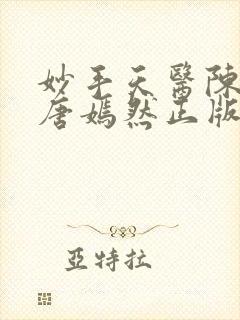 妙手天醫陳
唐嫣然正版
亞特拉